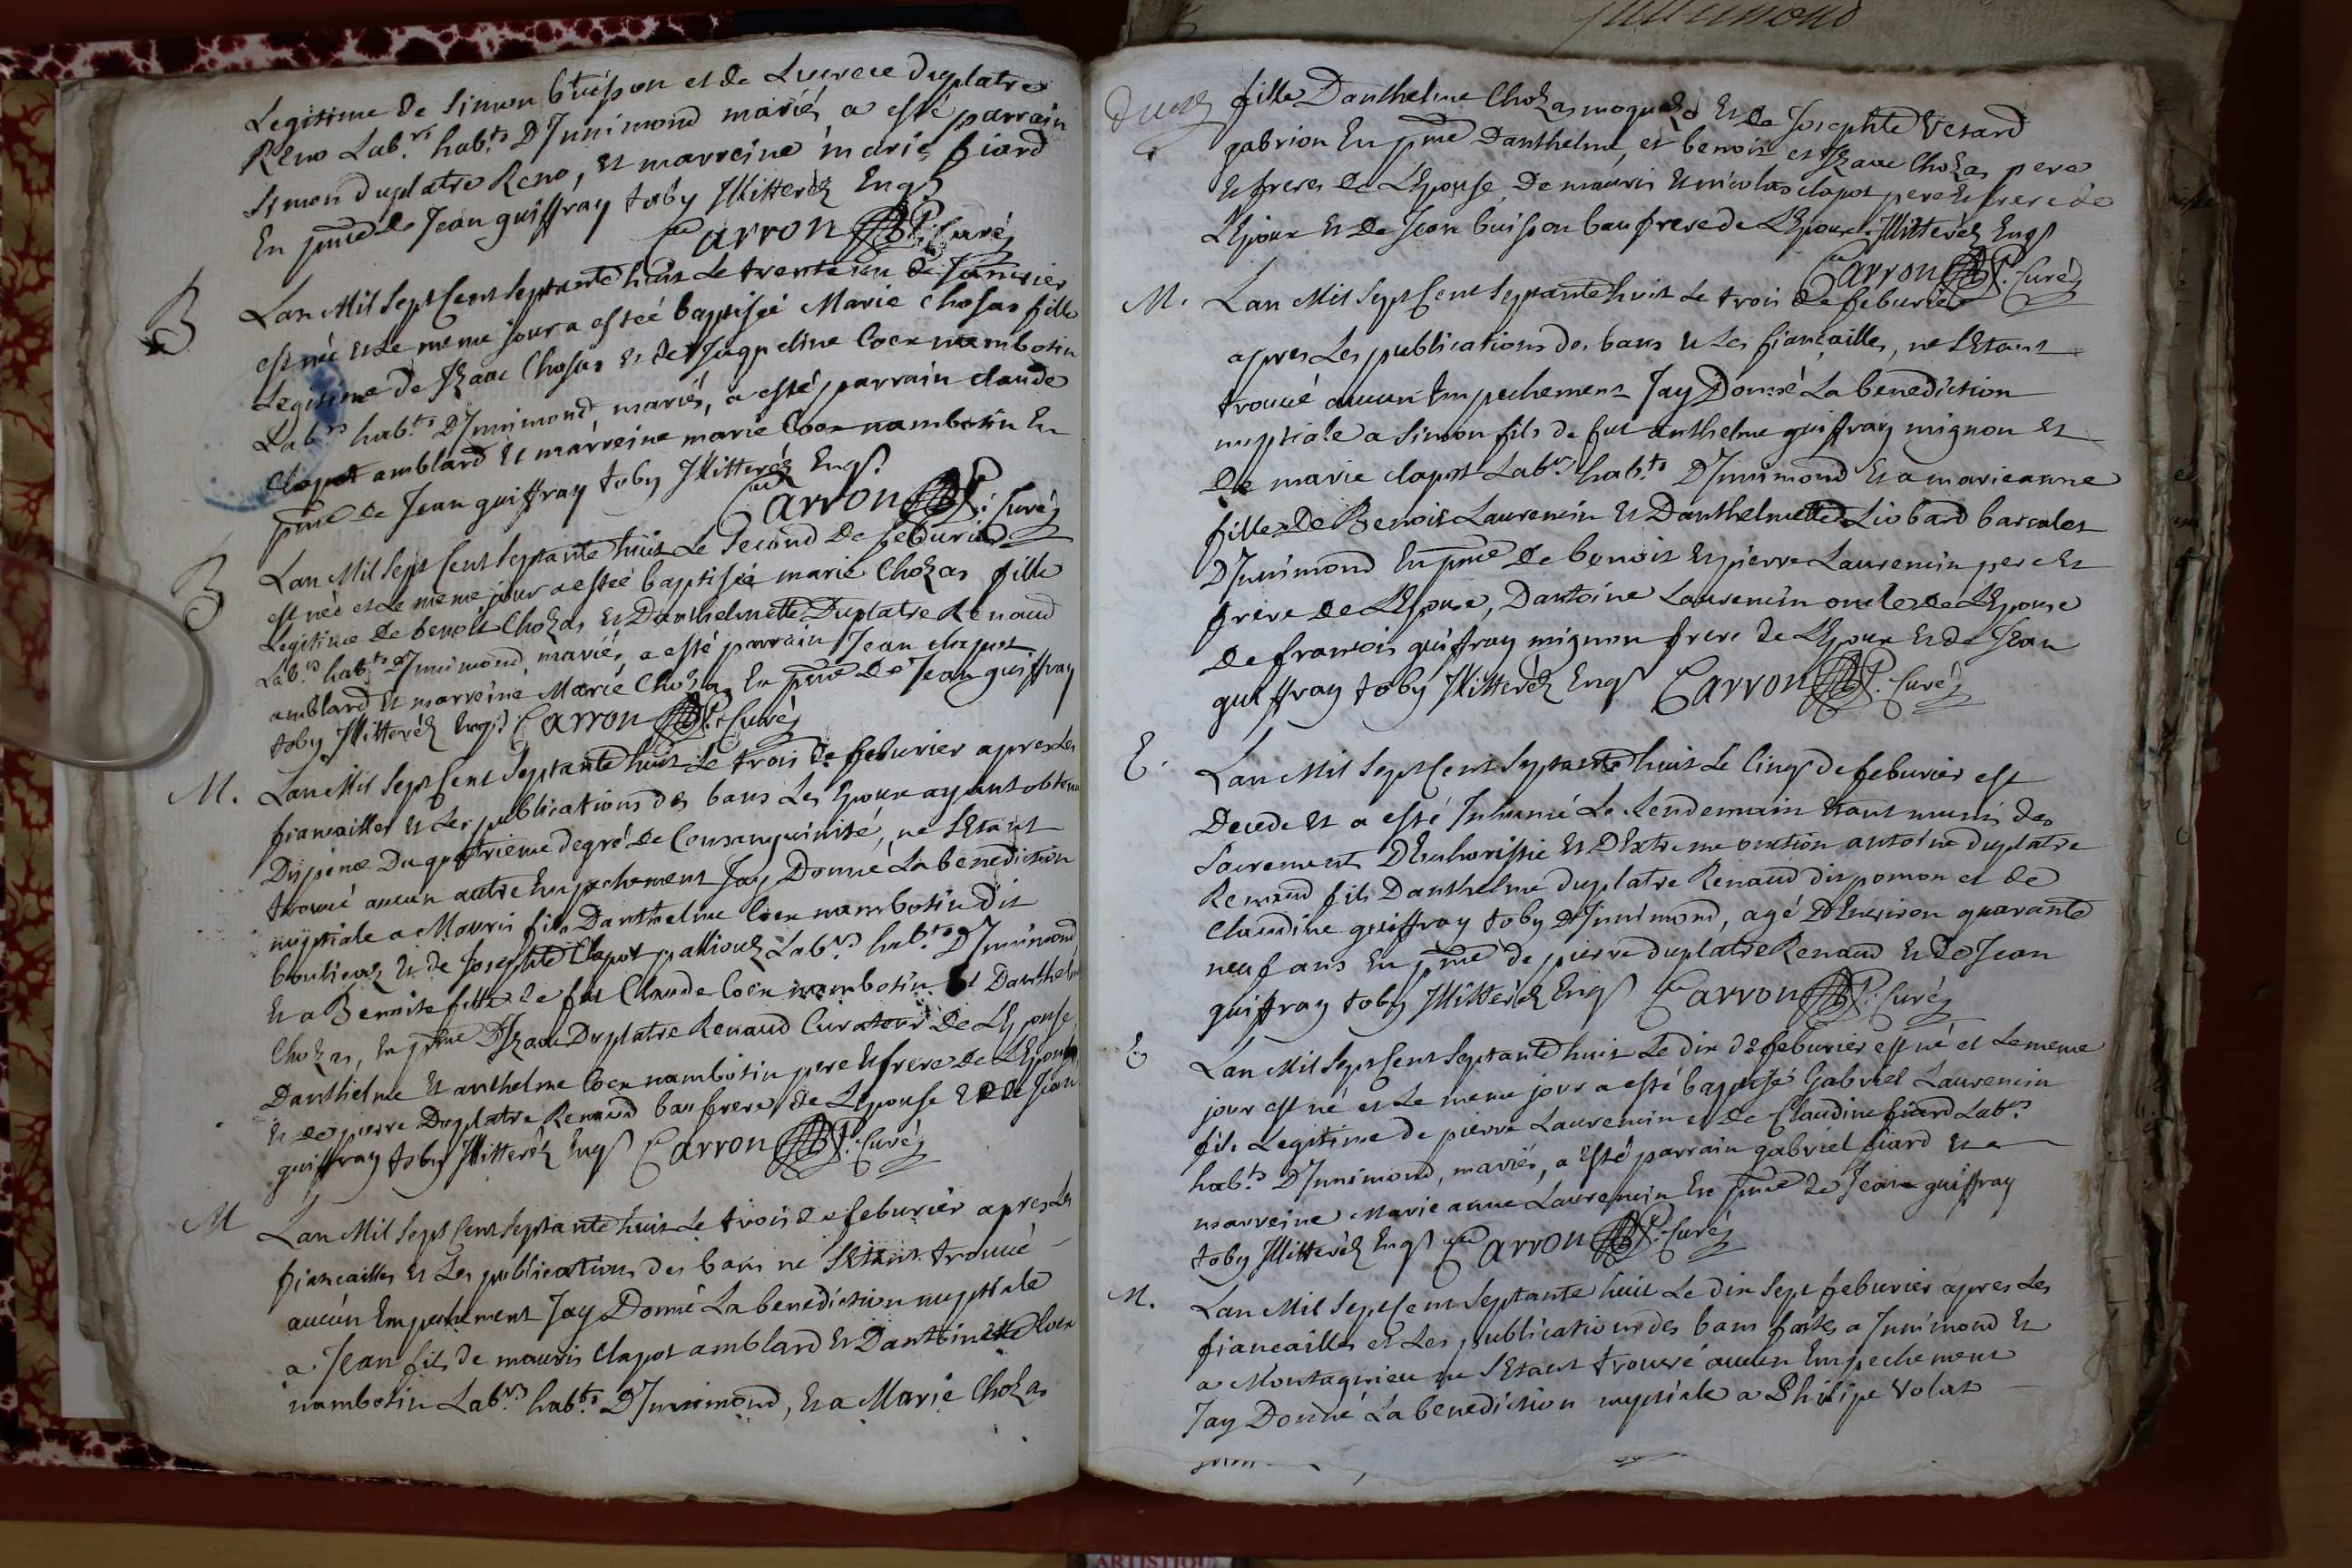 Legitime de Simon buisson et de Lucrece duplatre
Reno Lab.rs hab.ts D'Innimond mariés, a esté parrain
Simon duplatre Reno, et marreine marie fiard
En pnce de Jean guiffray toby Illitteréz Enqs
Carron P: Curéz
B Lan Mil Sept Cent Septante huit Le trente un de Janvier
est née et Le meme jour a estéé baptiséé Marie Chosas fille
Legitime de Izaac Chosas et de Jaqueline Coex nambotin
Lab.rs hab.ts D'Innimond mariés, a esté parrain claude
Clapot amblard et marreine marie Coex nambotin En
pnce de Jean guiffray toby Illitteréz Enqs.
Carron P: Curéz
B Lan Mil Sept Cent Septante huit Le Second De feburier
est néé et Le meme jour a estéé baptiséé marie Chozas fille
Legitime de benoit Chozas et Danthelmette Duplatre Renaud
Lab.rs hab.ts D'Innimond mariés, a esté parrain Jean clapot
amblard et marreine Marie Chozas En pnce De Jean guiffray
toby Illitteréz Enqs. Carron P: Curéz
M. Lan Mil Sept Cent Septante huit Le trois de feburier apres Les
fiancailles et Les publications des bans Les Epoux ayant obtenu
Dispense Du quatrieme degré de Consanguinité, ne S'Etant
trouvé aucun autre Empechement Jay Donné La benediction
nuptiale a Mauris fils Danthelme Coex nambotin dit
et de Josephte Clapot pallioux Lab.rs hab.ts D'Innimond
Et a Benoite fille de feu Claude Coex nambotin et Danthelme
Chozas, En pnce D'Izaac Duplatre Renaud Curateur De L'Epouse
Danthelme et anthelme Coex nambotin pere et frere de L'Epoux
et de pierre Duplatre Renaud beau frere de L'Epouse et de Jean
guiffray toby Illitteréz Enqs Carron P: Curéz
M Lan Mil Sept Cent Septante huit Le trois de feburier apres Les
fiancailles et Les publications des bans ne S'Etant trouvé
aucun Empechement Jay Donné La benediction nuptiale
a Jean fils de mauris Clapot amblard et Dantoinette Coex
nambotin Lab.rs hab.ts D'Innimond, et a Marie Chozas
fille Danthelme Chozas et de Josephte Vesard
gabrion En pnce Danthelme, et benoit et Izaac Chozas pere
et freres de L'Epouse, De mauris et nicolas clapot pere et frere de
L'Epoux et de Jean buisson beau frere de L'Epoux. Illitteréz Enqs
Carron P: Curéz
M. Lan Mil Sept Cent Septante huit Le trois de feburier
apres Les publications des bans et Les fiancailles, ne S'Etant
trouvé aucun Empechement Jay Donné La benediction
nuptiale a Simon fils de feu anthelme guiffray mignon et
De marie clapot Lab.rs hab.ts D'Innimond et a marieanne
fille De Benoit Laurencin et Danthelmette Liobard
D'Innimond En pnce De benoit et pierre Laurencin pere et
frere de L'Epouse, Dantoine Laurencin oncle de L'Epouse
De francois guiffray mignon frere de L'Epoux et de Jean
guiffray toby Illitteréz Enqs Carron P: Curéz
E. Lan Mil Sept Cent Septante huit Le Cinq de feburier est
Decede et a esté Inhumé Le Lendemain Etant munis des
Sacrements D'Eucharistie et D'Extreme onction antoine duplatre
Renaud fils Danthelme duplatre Renaud dit pomon et de
Claudine guiffray toby D'Innimond, agé D'Environ quarante
neuf ans En pnce de pierre duplatre Renaud et de Jean
guiffray toby Illitteréz Enqs Carron P: Curéz
Lan Mil Sept Cent Septante huit Le dix de feburier est né et Le meme
jour est né et Le meme jour a esté baptisé Gabriel Laurencin
fils Legitime de pierre Laurencin et De Claudine fiard Lab.rs
hab.ts D'Innimond, mariés, a esté parrain gabriel fiard et
marreine Marie anne Laurencin En pnce de Jean guiffray
toby Illitteréz Enqs Carron P: Curéz
M. Lan Mil Sept Cent Septante huit Le dix Sept feburier apres Les
fiancailles et Les publications des bans faites a Innimond et
a Montagnieu ne S'Etant trouvé aucun Empechement
Jay Donné La benediction nuptiale a Philipe Volat